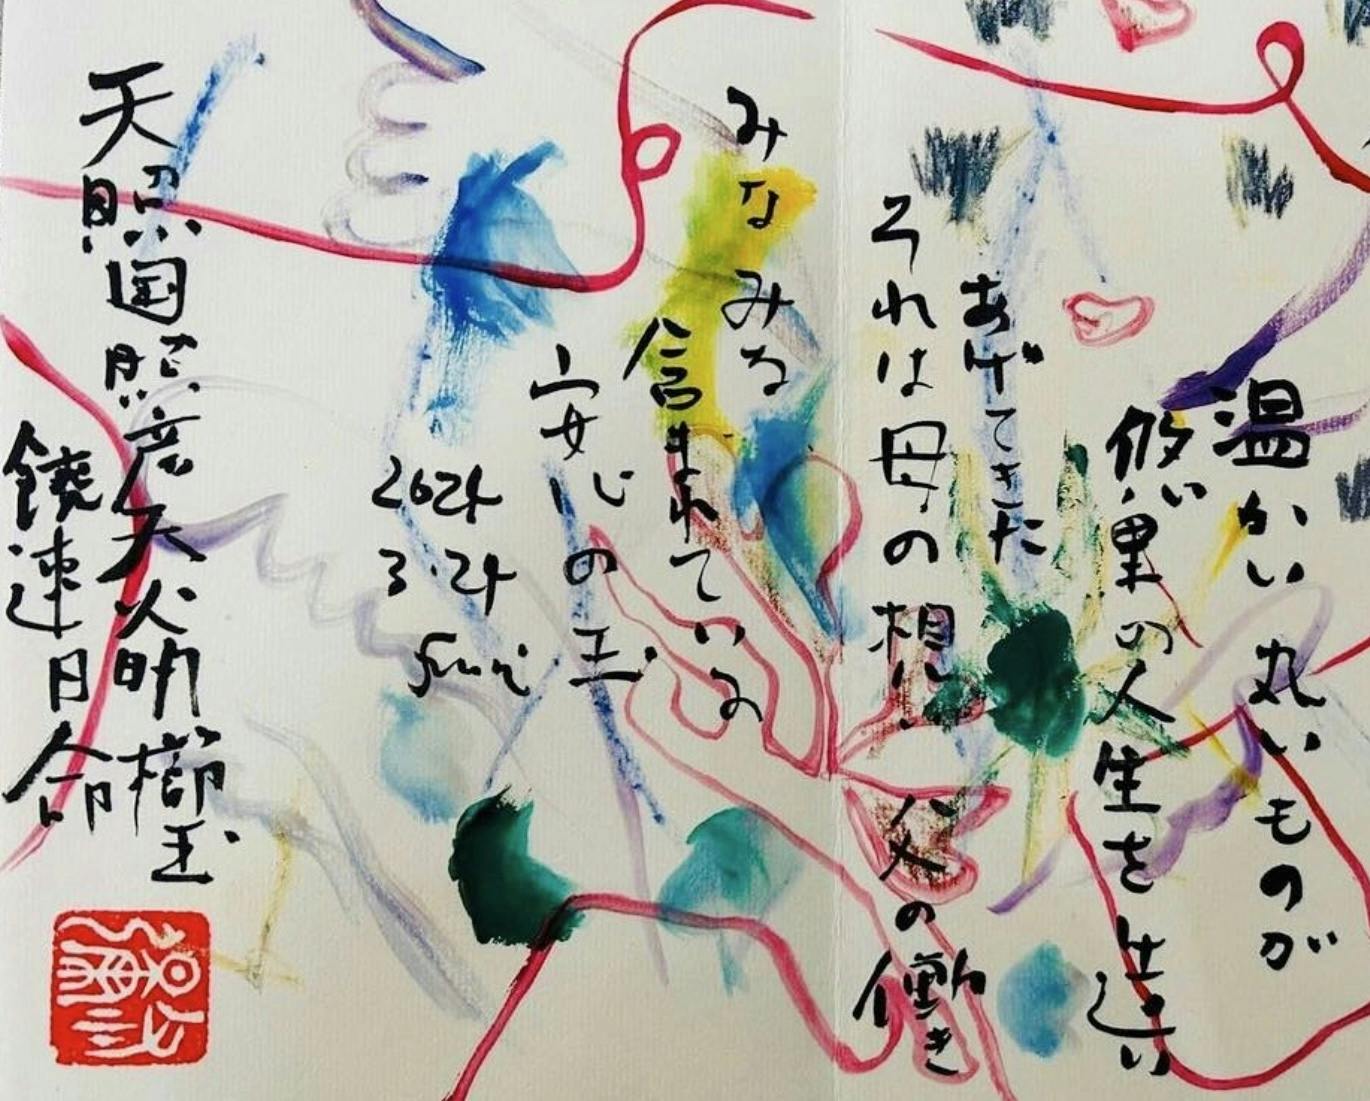 温かい丸いものが
悠里の人生を生造い
あげてきた
それは母の想い 父の働き
みなみな
含まれている
安心の玉
2024
3.24
天照国照彦天火明櫛玉
饒速日命